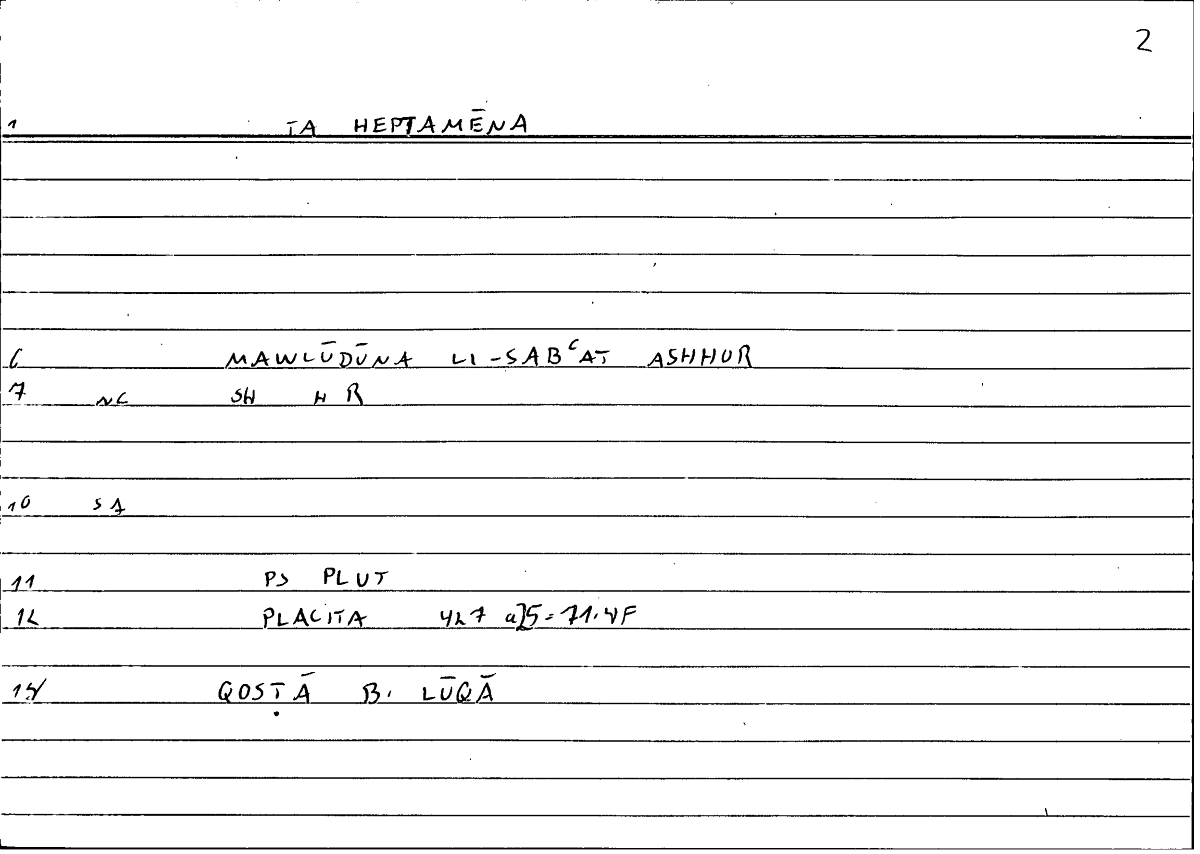 2
1 TA HEPTAMĒNA
6 MAWLŪDŪNA LI-SABᶜAT ASHHUR
7 NC SH H R
10 SA
11 PS PLUT
12 PLACITA 427 a]5=71.4F
14 QOSṬĀ B. LŪQĀ